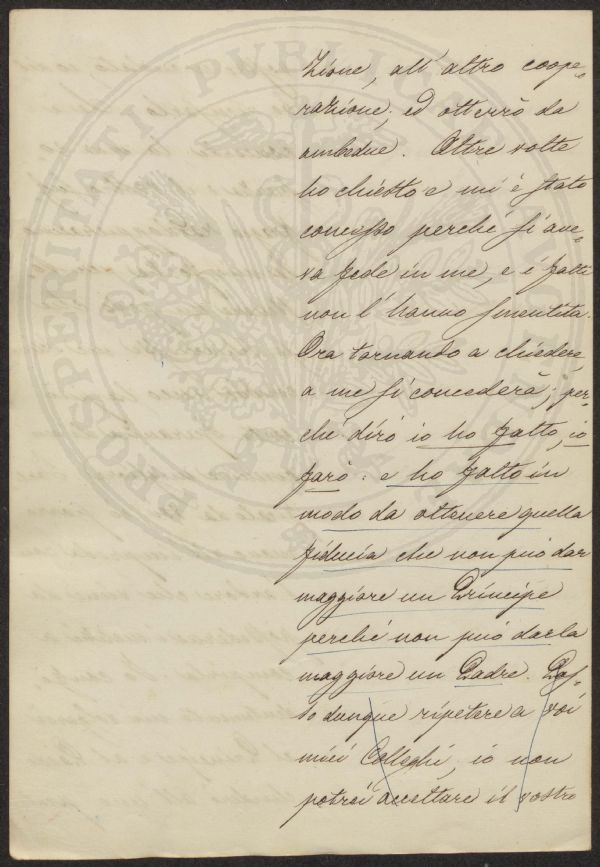 zione, all'altro coope=
razione; ed otterrò da
ambedue. Altre volte
ho chiesto e mi è stato
concesso perché si ave=
va fede in me, e i fatti
non l'hanno smentita.
Ora tornando a chiedere,
a me si concederà; per=
ché dirò io ho fatto, io
farò: e ho fatto in
modo da ottenere quella
fiducia che non può dar
maggiore un Principe
perché non può darla
maggiore un Padre. Pos=
so dunque ripetere a voi
miei Colleghi, io non
potrei accettare il vostro
PROSPERITATI PUBLICAE